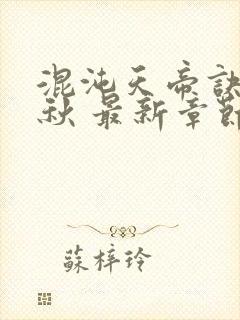 混沌天帝訣
秋 最新章節
蘇梓玲